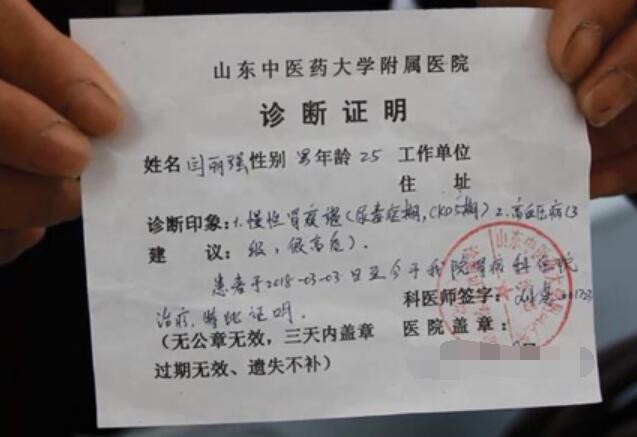 山东中医药大学附属医院
诊断证明
姓名 闫丽强 性别 男 年龄 25 工作单位
住 址
诊断印象:1.慢性肾衰竭(尿毒症期,CKD5期)2.高血压病(3
建 议: 级,很高危).
患者于2018-03-03日至今于我院肾病科住院
科医师签字:
治疗,特此证明.
(无公章无效,三天内盖章
医院盖章:
过期无效、遗失不补)
山东中医